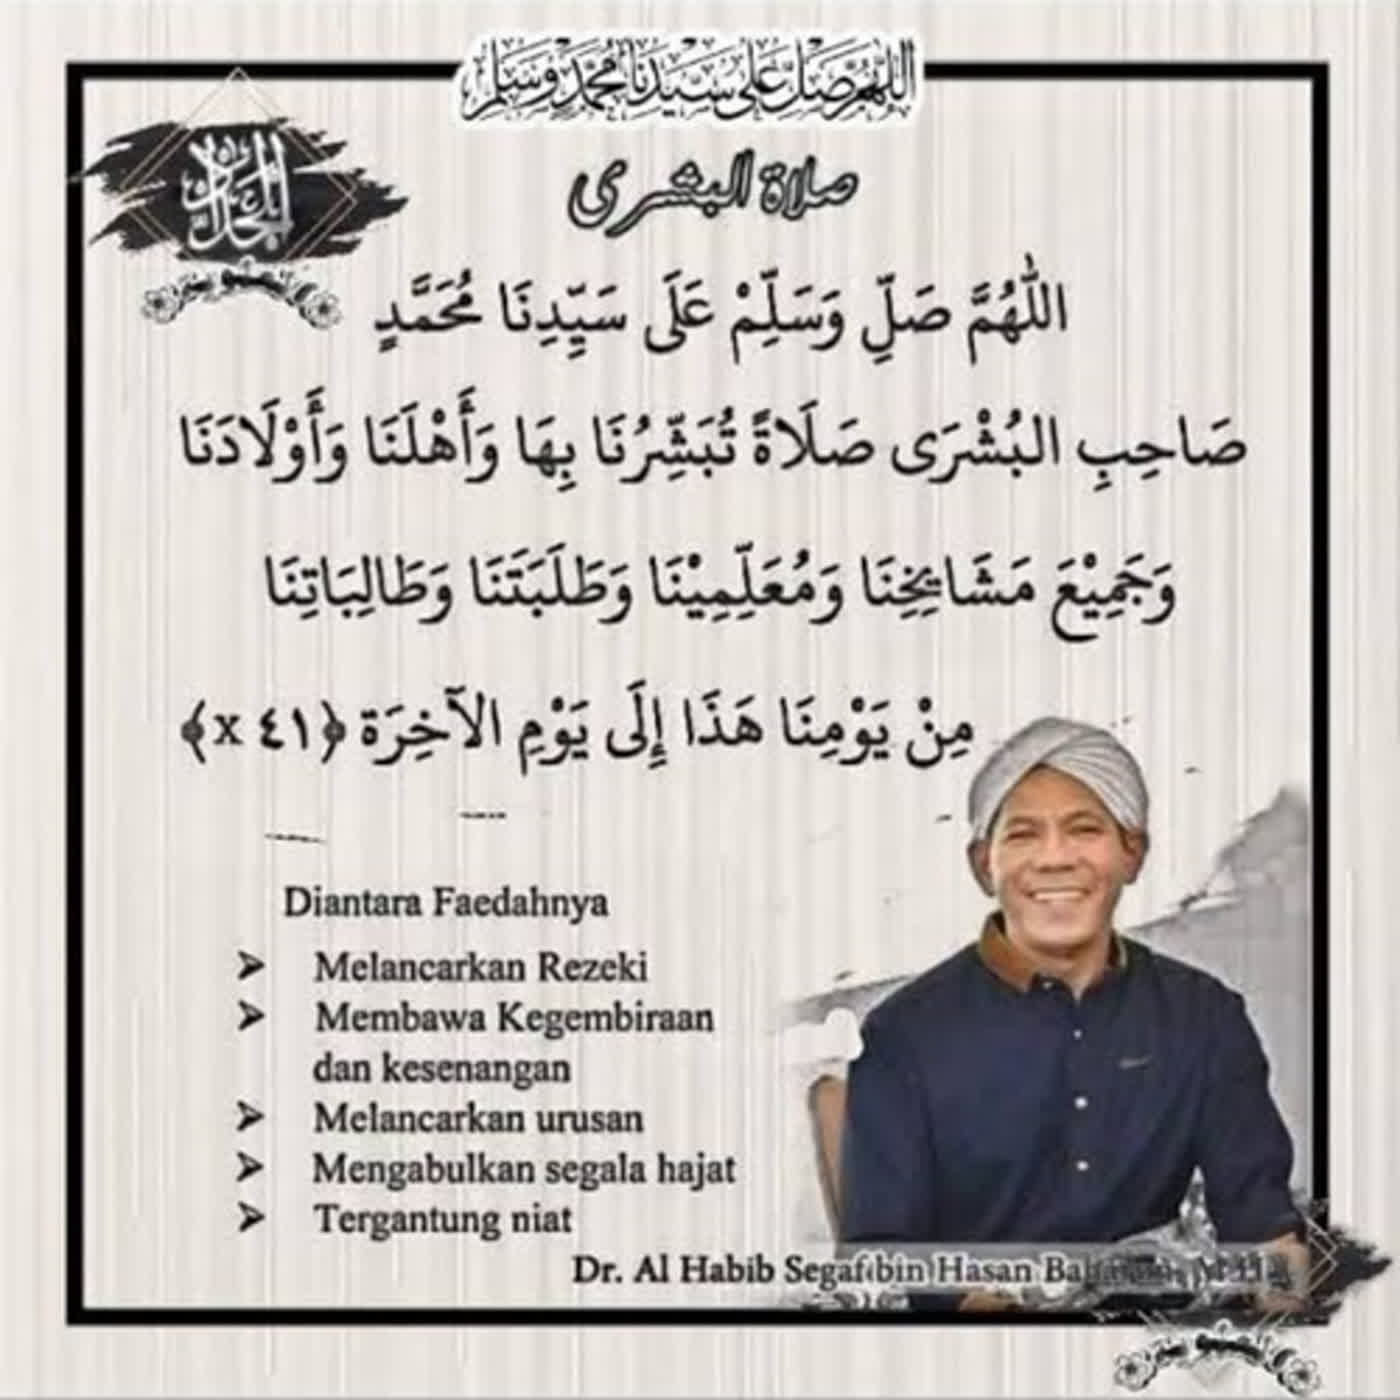 اللهم صل على سيدنا محمد وسلم
صلاة البشرى
اللّٰهُمَّ صَلِّ وَسَلِّمْ عَلَى سَيِّدِنَا مُحَمَّدٍ
صَاحِبِ البُشْرَى صَلَاةً تُبَشِّرُنَا بِهَا وَأَهْلَنَا وَأَوْلَادَنَا
وَجَمِيْعَ مَشَايِخِنَا وَمُعَلِّمِيْنَا وَطَلَبَتَنَا وَطَالِبَاتِنَا
مِنْ يَوْمِنَا هَذَا إِلَى يَوْمِ الآخِرَة ﴿٤١ x﴾
Diantara Faedahnya
➢ Melancarkan Rezeki
➢ Membawa Kegembiraan
dan kesenangan
➢ Melancarkan urusan
➢ Mengabulkan segala hajat
➢ Tergantung niat
Dr. Al Habib Segaf bin Hasan